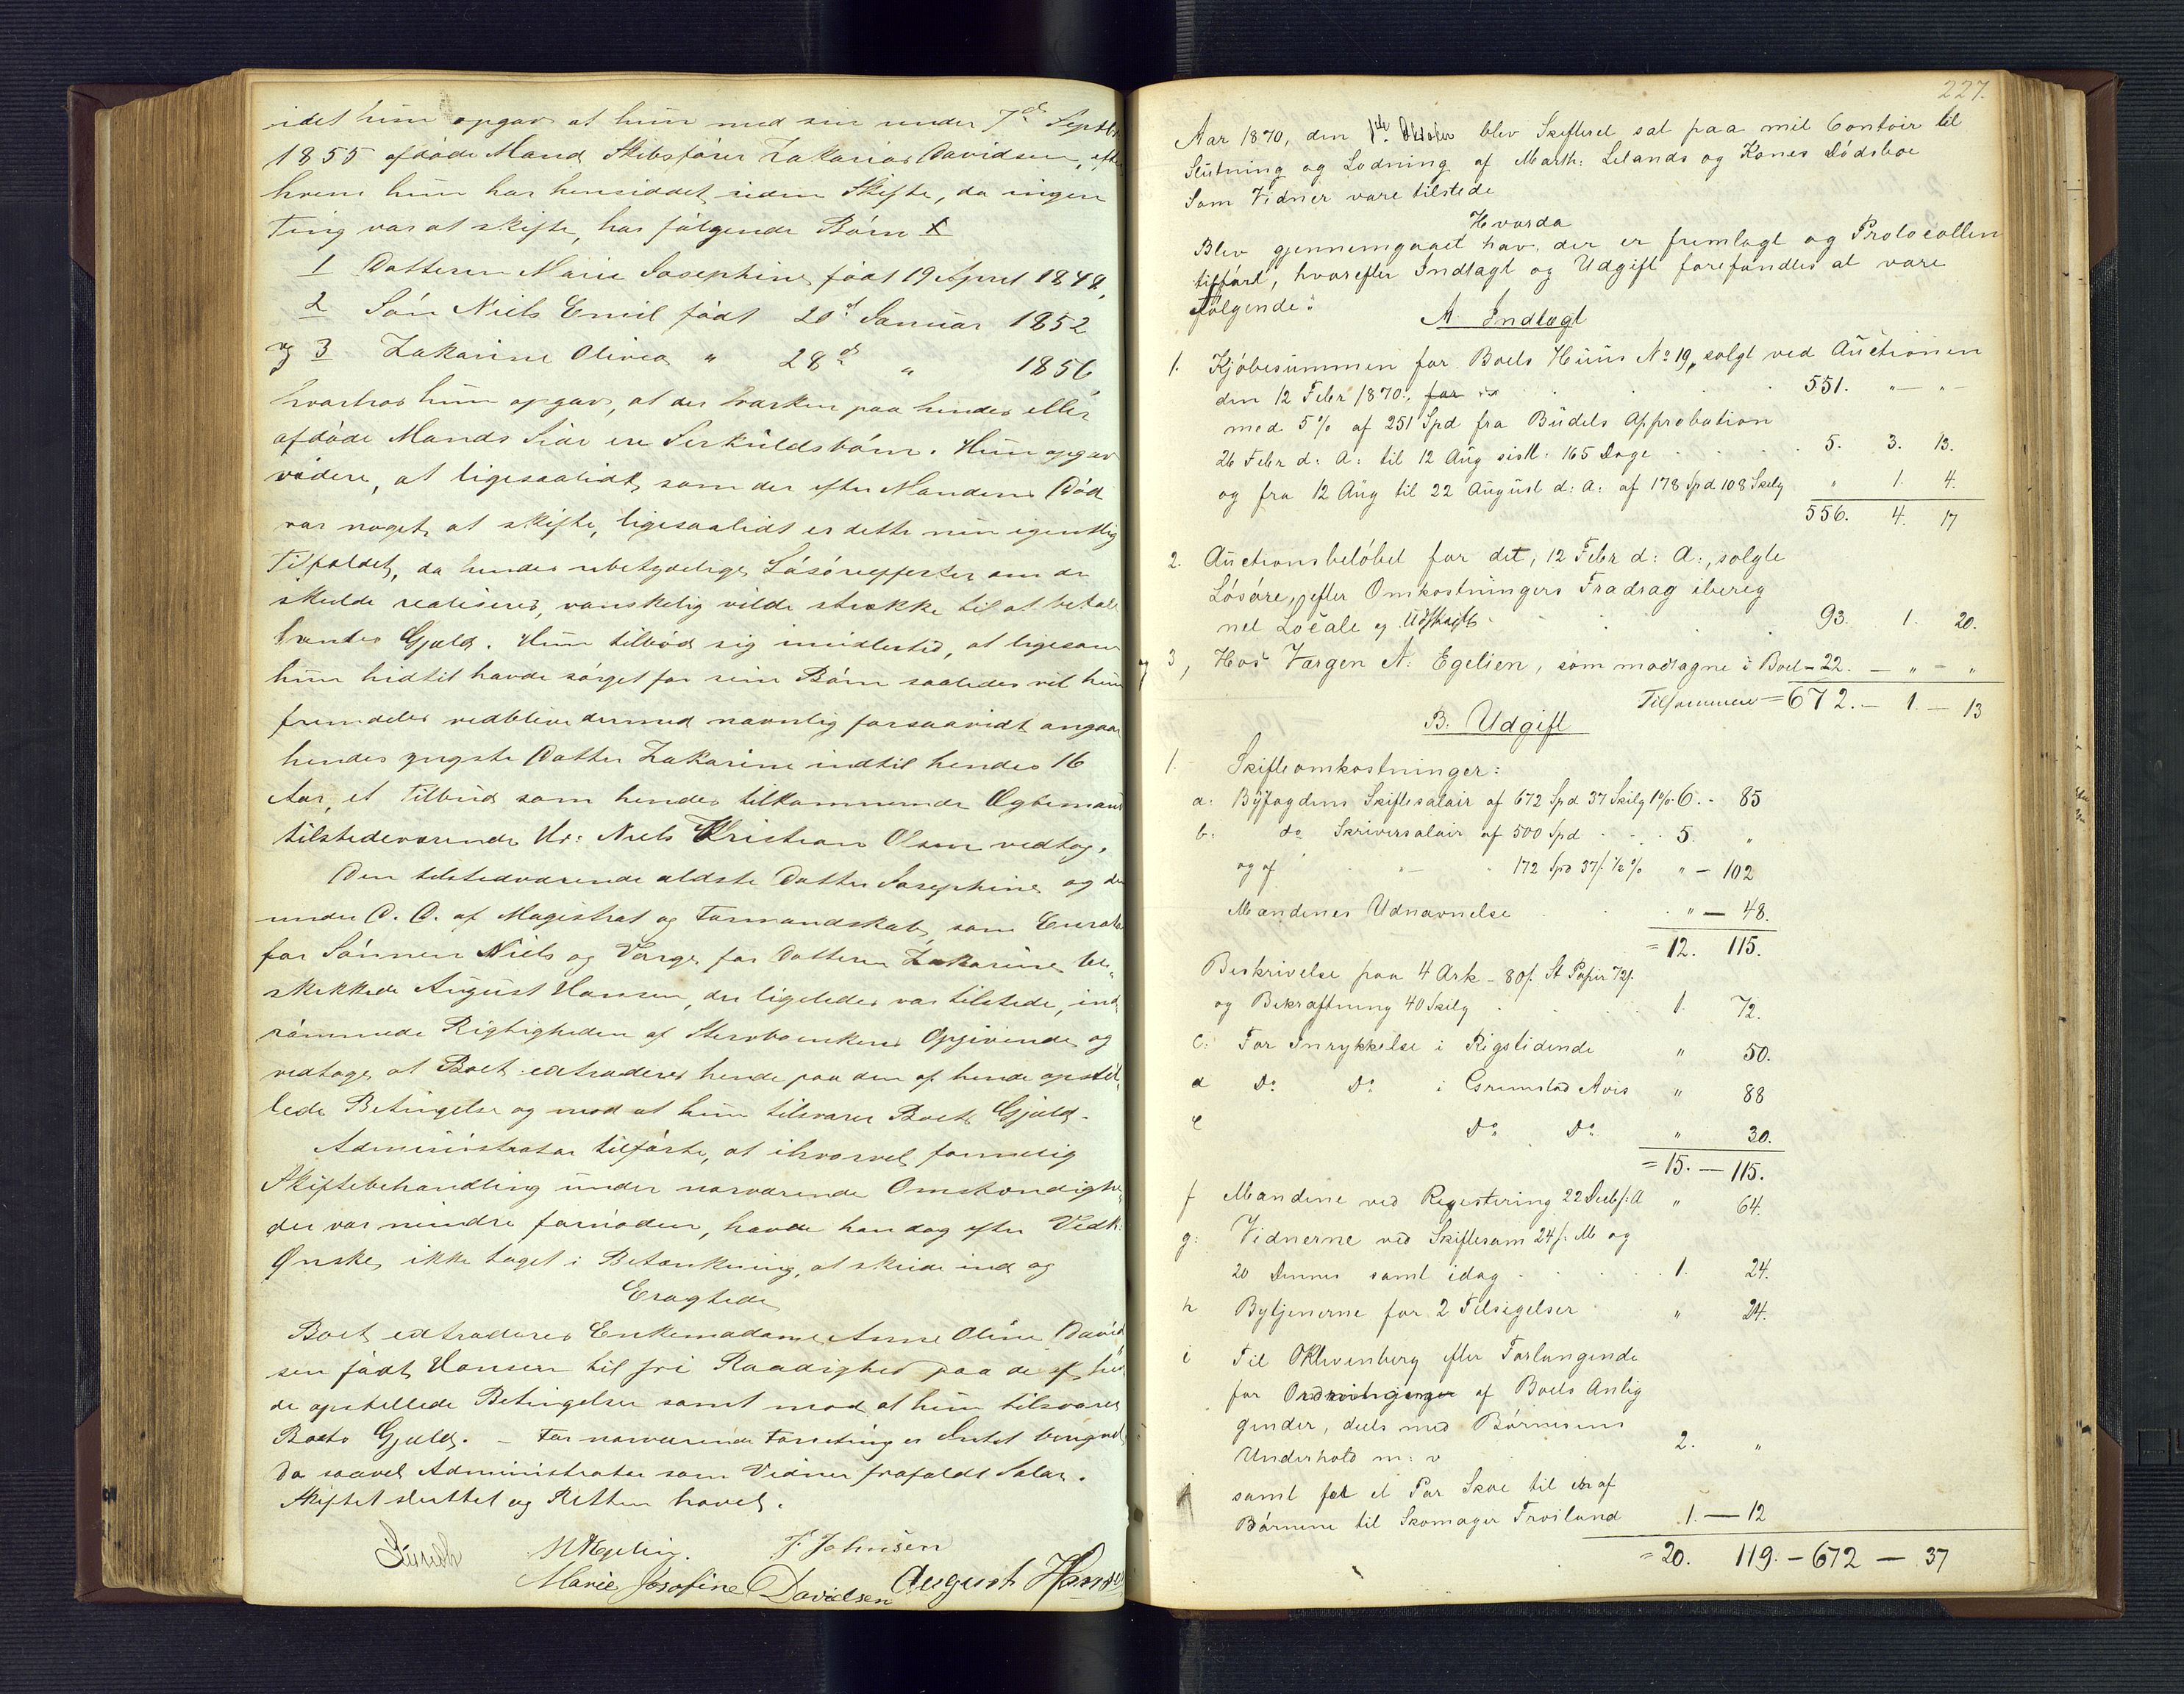 idet hun opgav at hun med sin under 7de Septbr
1855 afdøde Mand Skibsfører Zakarias Davidsen, efter
hvem hun har hensiddet uden Skifte, da ingen
Ting var at skifte, har følgende Børn
1 Datteren Marie Josephine født 19 April 1849,
2 Søn Niels Emil født 20de Januar 1852
og 3 Zakarine Olivia " 28de " 1856,
hvorhos hun opgav, at der hverken paa hendes eller
afdøde Mands Side ere Særkuldsbørn. Hun opgav
videre, at ligesaalidt som der efter Mandens Død
var noget at skifte, ligesaalidt er dette nu egentlig
Tilfældet, da hendes ubetydelige Løsøreeffecter om de
skulde realiseres, vanskelig vilde strække til at betale
hendes Gjæld. Hun tilbød sig imidlertid, at ligesom
hun hidtil havde sørget for sine Børn saaledes vil hun
fremdeles vedblive dermed navnlig forsaavidt angaar
hendes yngste Datter Zakarine indtil hendes 16
Aar, et Tilbud som hendes tilkommende Ægtemand
tilstedeværende Hr: Niels Kristian Olsen vedtog.
Den tilstedværende ældste Datter Josephine og den
under D. D. af Magistrat og Formandskab, som Curator
for Sønnen Niels og Værge for Datteren Zakarine be-
skikkede August Hansen, der ligeledes var tilstede, ind
rømmede Rigtigheden af Stervboenkens Opgivende og
vedtoge, at Boet extraderes hende paa den af hende opstil-
lede Betingelse og mod at hun tilsvarer Boets Gjæld.
Administrator tilførte, at ihvorvel formelig
Skiftebehandling under nærværende Omstændighe-
der var mindre fornøden, havde han dog efter Vedk:
Ønske, ikke taget i Betænkning, at skride ind og
Eragtede
Boet extraderes Enkemadame Anne Oline David
sen født Hansen til fri Raadighed paa de af hen
de opstillede Betingelser samt mod at hun tilsvarer
Boets Gjæld. – For nærværende Forretning er Intet beregnet
da saavel Administrator som Vidner frafaldt Salær.
Skiftet sluttet og Retten hævet.
F. Johnsen
Marie Josofine Davidsen August Hansen
227.
Aar 1870, den 1ste Oktober blev Skifteret sat paa mit Contoir til
Slutning og Lodning af Marth: Lelands og Kones Dødsboe
Som Vidner vare tilstede
Hvorda
Blev gjennemgaaet hav, der er fremlagt og Protocollen
tilført, hvorefter Indtægt og Udgift forefandtes at være
følgende:
A Indtægt
1. Kjøbesummen for Boets Huus No 19, solgt ved Auctionen
den 12 Febr 1870, for 551. " "
med 5% af 251 Spd fra Budets Approbation
26 Febr d: A: til 12 Aug sistl: 165 Dage 5. 3. 13.
og fra 12 Aug til 22 August d: A: af 178 Spd 108 Skilg " 1. 4.
556. 4. 17
2. Auctionsbeløbet for det, 12 Febr d: A:, solgte
Løsøre, efter Omkostningers Fradrag ibereg
net Locale og Udskrift 93. 1. 20.
og 3, Hos Værgen N: Egelien, som modtagne i Boet – 22. – " – "
Tilsammen = 672. – 1. – 13
B. Udgift
1. Skifteomkostninger:
a: Byfogdens Skiftesalair af 672 Spd 37 Skilg 1% 6. - 85
b: do Skriversalair af 500 Spd 5. "
og af " 172 Spd 37/. ½ % " – 102
Mændenes Udnævnelse " – 48.
= 12. 115.
Beskrivelse paa 4 Ark – 80/. St Papir 72/.
og Bekræftning 40 Skilg 1. 72.
c: For Inrykkelse i Rigstidende " 50.
d Do Do i Grimstad Avis " 88
e Do Do " 30.
= 15. – 115.
f Mændene ved Registering 22 Decbr f: A " 64.
g: Vidnerne ved Skiftesam 24/. M og
20 Dennes samt idag 1. 24.
h Bytjenerne for 2 Tilsigelser " 24.
i Til OKlevenberg efter Forlangende
for af Boets Anlig
gender, deels med Børnenes
Underhold m: v 2. "
samt for et Par Skoe til en af
Børnene til Skomager Froiland 1. – 12
= 20. 119. – 672 – 37